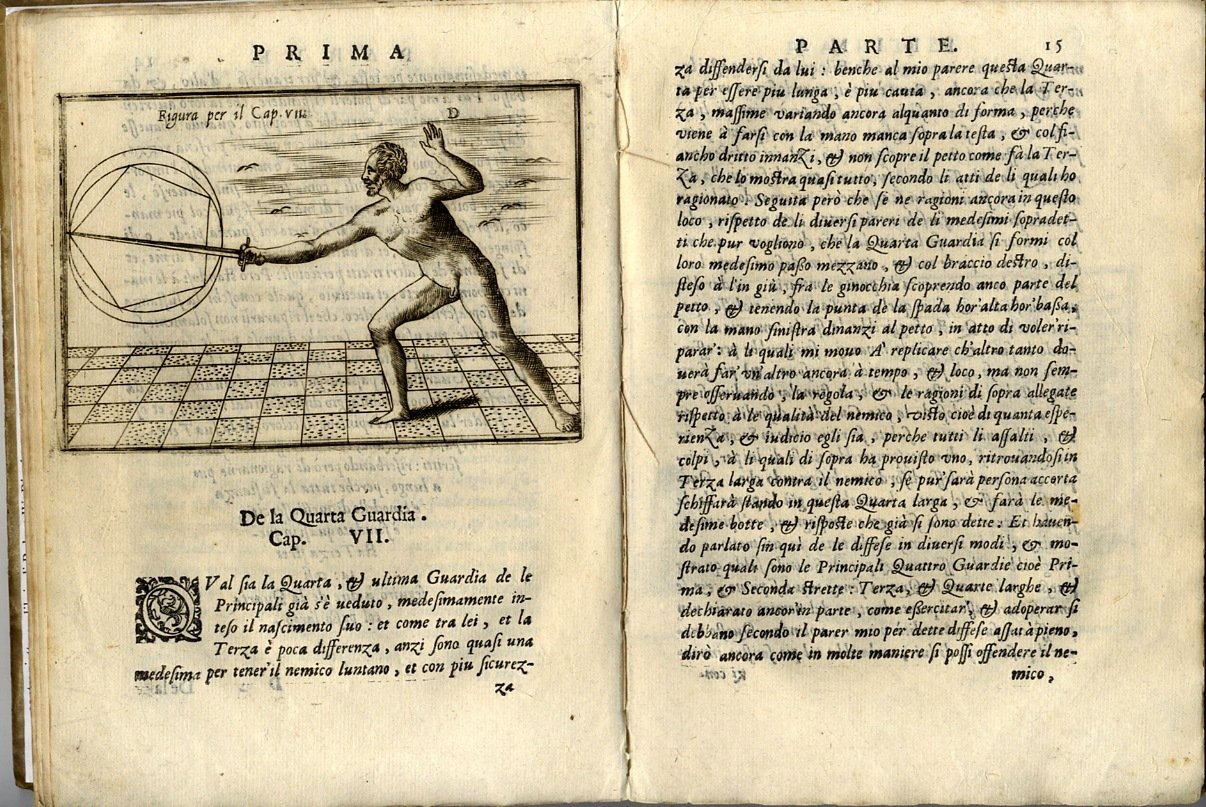 PRIMA
Figura per il Cap. VII
D
De la Quarta Guardia.
Cap. VII.
QVal sia la Quarta, & ultima Guardia de le
Principali già s'è ueduto, medesimamente in-
teso il nascimento suo: et come tra lei, et la
Terza è poca differenza, anzi sono quasi una
medesima per tener'il nemico luntano, et con piu sicurez-
za
PARTE. 15
za diffendersi da lui: benche al mio parere questa Quar-
ta per essere piu lunga, è piu cauta, ancora che la Ter-
za, massime variando ancora alquanto di forma, perche
viene à farsi con la mano manca sopra la testa, & col fi-
ancho dritto innanzi, & non scopre il petto come fà la Ter-
za, che lo mostra quasi tutto, secondo li atti de li quali ho
ragionato. Seguita però che se ne ragioni ancora in questo
loco, rispetto de li diversi pareri de li medesimi sopradet-
ti che pur vogliono, che la Quarta Guardia si formi col
loro medesimo passo mezzano, & col braccio destro, di-
steso à l'in giù, fra le ginocchia scoprendo anco parte del
petto, & tenendo la punta de la spada hor'alta hor'bassa,
con la mano sinistra dinanzi al petto, in atto di voler'ri-
parar': à li quali mi mouo A' replicare ch'altro tanto do-
uerà far'vn'altro ancora à tempo, & loco, ma non sem-
pre osseruando, la regola, & le ragioni di sopra allegate
rispetto à le qualità del nemico, visto cioè di quanta espe-
rienza, & iudicio egli sia, perche tutti li assalti, &
colpi, à li quali di sopra ha prouisto vno, ritrouandosi in
Terza larga contra il nemico, se pur'sarà persona accorta
schiffarà stando in questa Quarta larga, & farà le me-
desime botte, & risposte che già si sono dette: Et hauen-
do parlato sin quì de le diffese in diversi modi, & mo-
strato quali sono le Principali Quattro Guardie cioè Pri-
ma, & Seconda strette: Terza, & Quarte larghe, &
dechiarato ancor'in parte, come essercitar', & adoperar si
debbano secondo il parer mio per dette diffese assai à pieno,
dirò ancora come in molte maniere si possi offendere il ne-
mico,